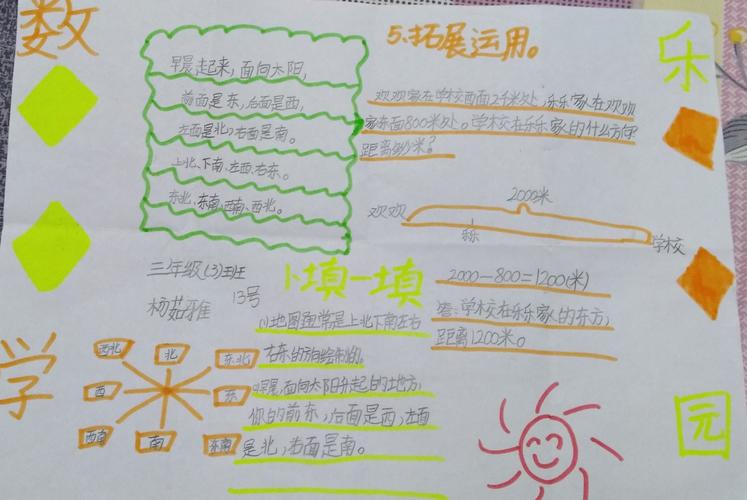 数
学
乐
园
早晨起来,面向太阳,
前面是东,后面是西,
左面是北,右面是南。
上北、下南、左西、右东。
东北、东南、西南、西北。
5.拓展运用。
欢欢家在学校西面2千米处,乐乐家在欢欢
家东面800米处。学校在乐乐家的什么方向
距离多少米?
2000米
欢欢
乐乐
学校
2000-800=1200(米)
答:学校在乐乐家的东方,
距离1200米。
三年级(3)班
杨茹雅
13号
1.填一填
(1)地图通常是上北下南左右
右东的方向绘制的。
早晨,面向太阳升起的地方,
你的前东,后面是西,左面
是北,右面是南。
西北
北
东北
西
东
西南
南
东南